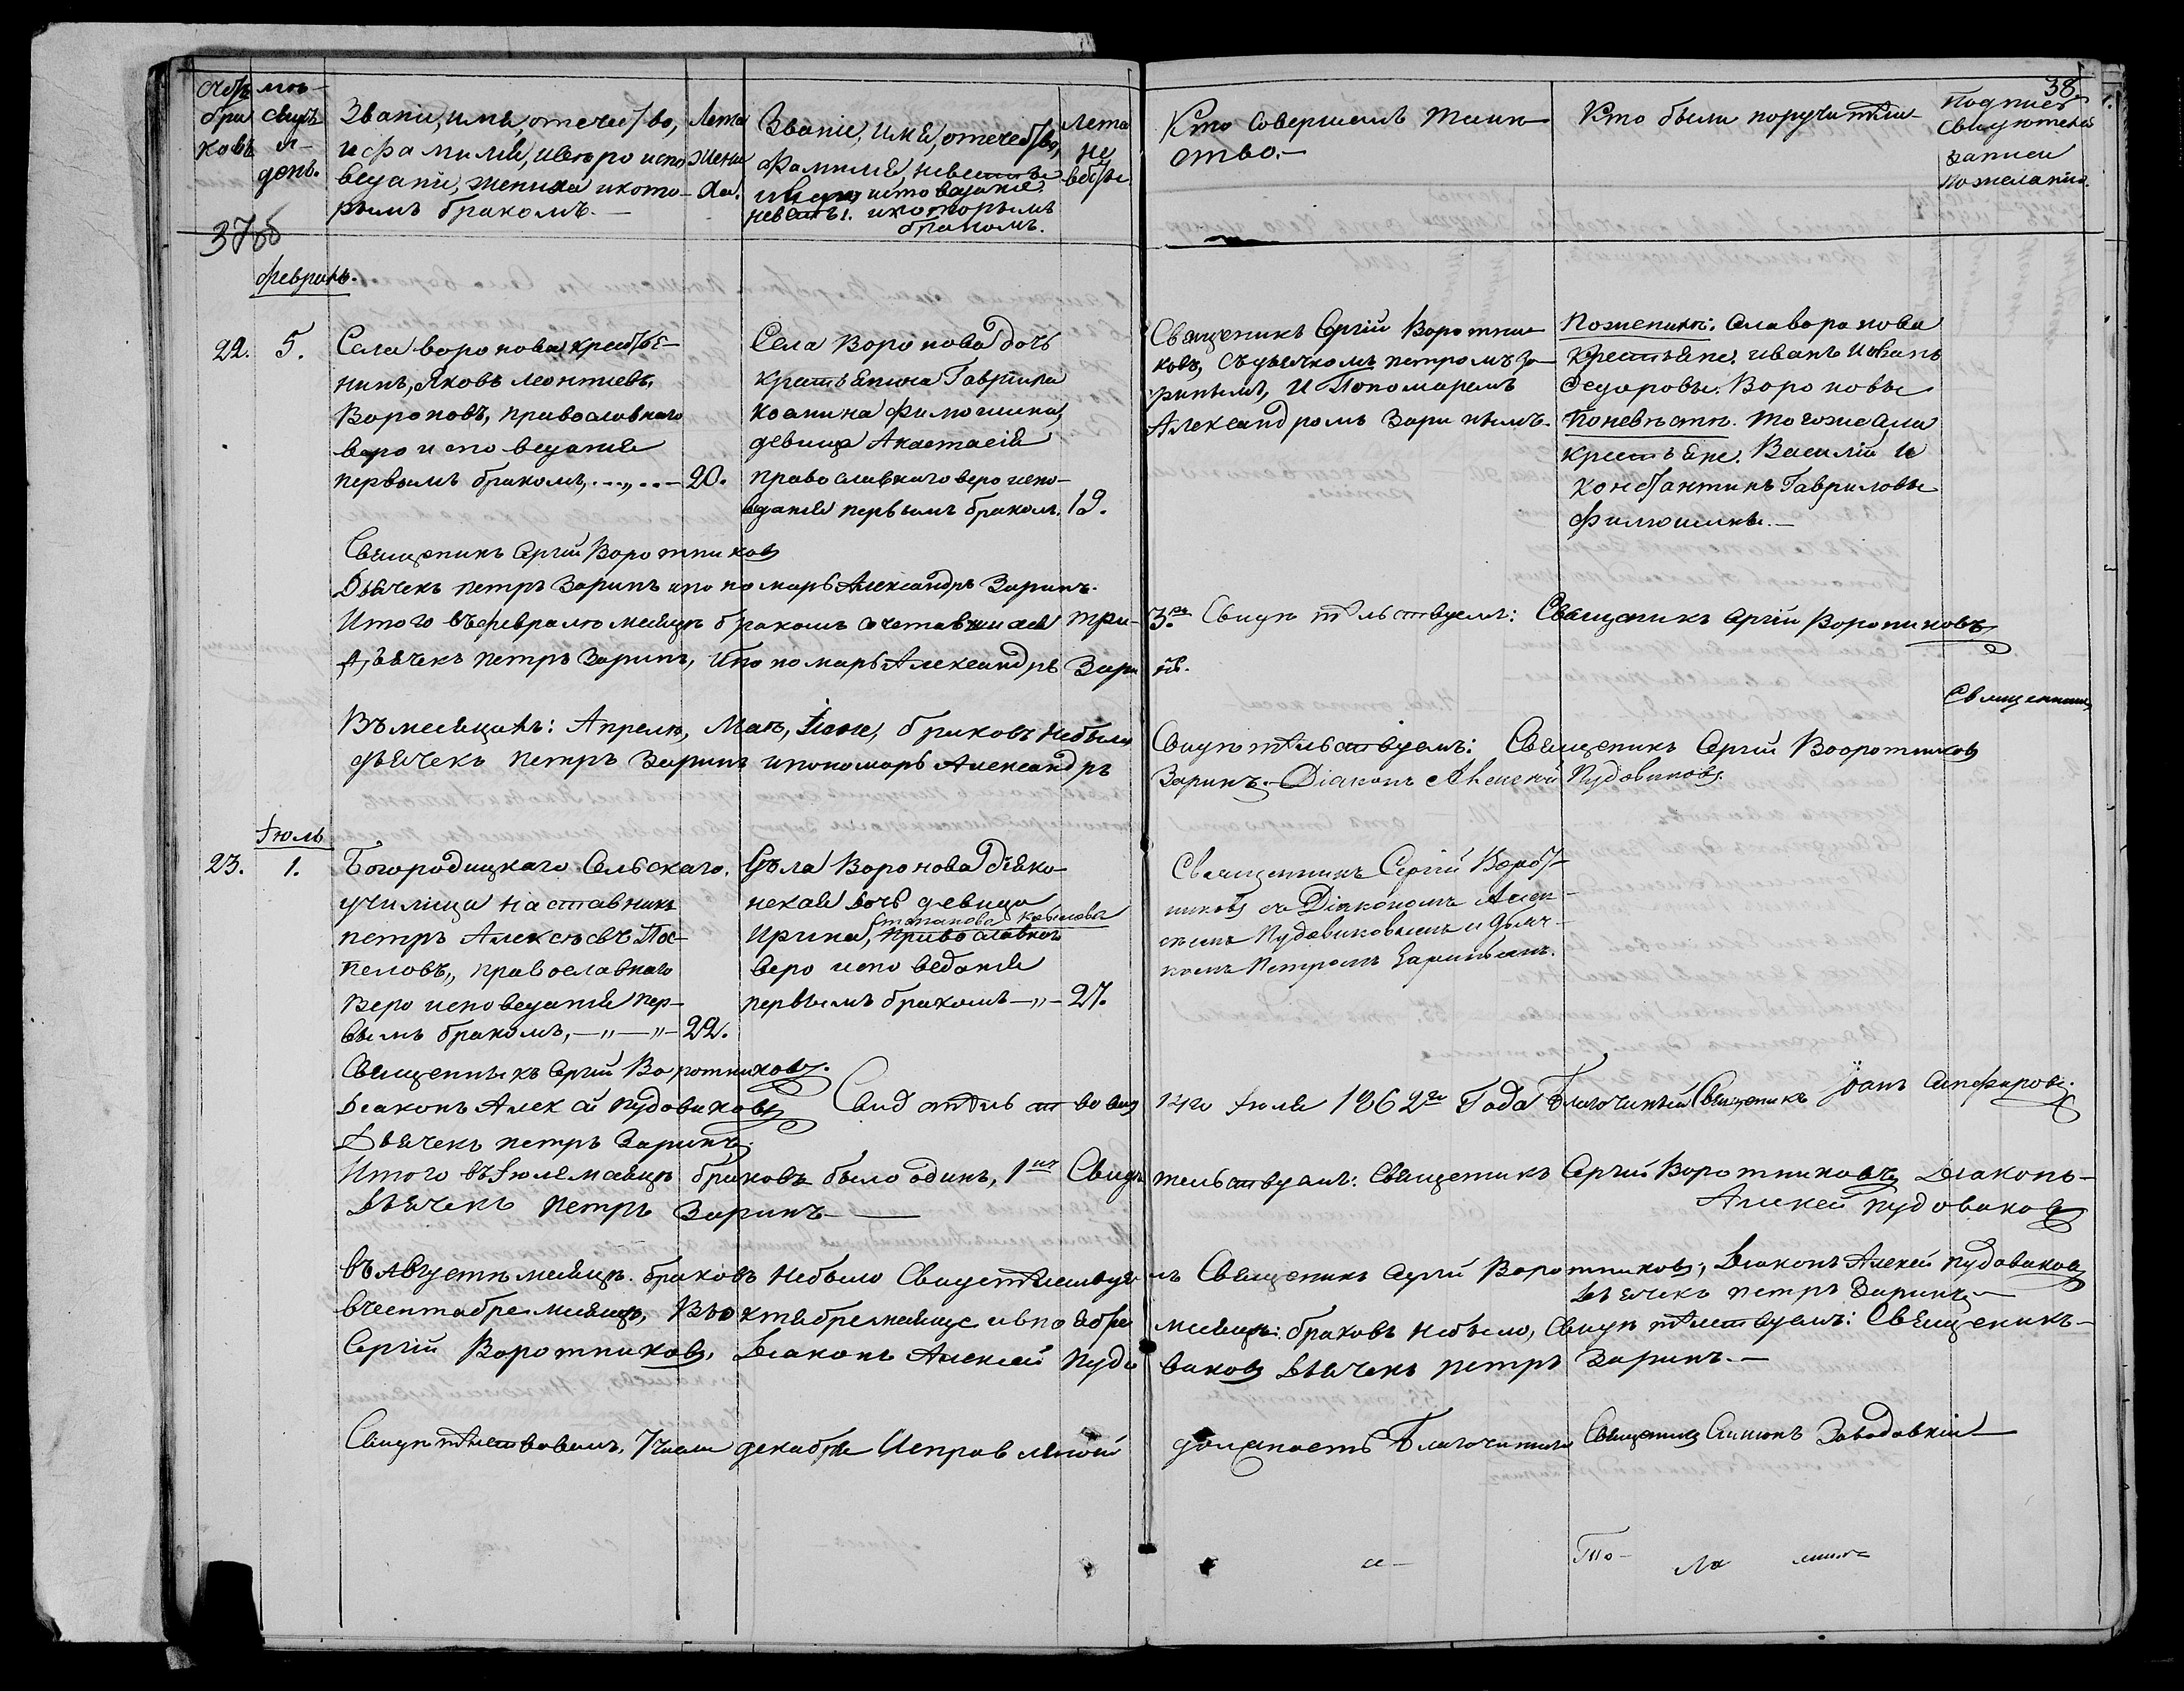 38
Счетъ бра ковъ
мѣ- сяцъ и- день.
Званіе, имя, отечество,
и фамилія, и вѣро испо
веданіе, жениха и кото-
рымъ бракомъ.-
Лета жени ха.
Званіе, имя, отечество,
фамилія, невесты
и веро исповеданіе
невесты. и которымъ
бракомъ.
Лета не весты.
Кто совершалъ таин-
ство.-
Кто были поручители
Подпись
свидетелей
записи
по желанію.
37об
Февраль.
22. 5.
Села воронова крестья-
нинъ, Яковъ Леонтиевъ
Вороновъ, православнаго
веро испо веданія
первымъ бракомъ, - 20.
Села Воронова дочь
крестьянина Гавриила
девица Анастасія
православнаго веро испо-
веданія первымъ бракомъ. 19.
Священикъ Сергій Воротни-
ковъ, съ дьячкомъ петромъ За-
ринымъ, и Пономаремъ
Александромъ Заринымъ.
По женихѣ: села воронова
крестьяне. иванъ и иванъ
Федоровы. Вороновы
По невѣстѣ. того же села
крестьяне. Василій и
Константинъ Гавриловы
Филюшины.-
Священикъ Сергій Воротниковъ
Дьячекъ петръ Заринъ и пономарь Александръ Заринъ.
Итого въ феврале месяцѣ бракомъ сочетавшихся три- 3. Свидѣтельствуемъ: Священикъ Сергій Воротниковъ
Дьячекъ петръ Заринъ, и пономарь Александръ Заринъ.
Священникъ
Въ месяцахъ: Апрелѣ, Маѣ, Іюне, браковъ не было Свидѣтельствуемъ: Священикъ Сергій Воротниковъ
дьячекъ петръ Заринъ и пономарь Александръ Заринъ.- Діаконъ Алексей Пудовиковъ.
Іюль
23. 1.
Богородицкаго сельскаго
училища наставникъ
петръ Алексѣевъ Пос-
пеловъ, православнаго
веро исповеданія пер-
вымъ бракомъ, - 22.
Села Воронова дьяко-
нская дочь девица
Степанова
Ирина, православнаго
веро испо веданія
первымъ бракомъ - 27.
Священникъ Сергій Ворот-
никовъ съ Діакономъ Алек-
сеемъ Пудовиковымъ и дьяч-
комъ Петромъ Заринымъ.
Священникъ Сергій Воротниковъ.
Діаконъ Алексей Пудовиковъ Свидетельствовалъ 14го Іюля 1862го Года Благочинный Священикъ Іоанъ
Дьячекъ петръ Заринъ.
Итого въ Іюле месяцѣ браковъ было одинъ, 1нъ Свидѣтельствуемъ: Священикъ Сергій Воротниковъ Діаконъ-
Дьячекъ петръ Заринъ Алексей Пудовиковъ
въ Августѣ месяцѣ браковъ не было Свидетельствуемъ Священикъ Сергій Воротниковъ, Діаконъ Алексей Пудовиковъ
Дьячекъ петръ Заринъ
въ сентабре месяцѣ, Въ октябре месяце и въ ноябре месяцѣ: браковъ не было, Свидѣтельствуемъ: Священикъ-
Сергій Воротниковъ, Діаконъ Алексей Пудовиковъ Дьячекъ петръ Заринъ.-
Свидѣтельствовалъ, 7 числа декабря Исправляющій должность Благочиннаго Священикъ Симеонъ Заводовскій